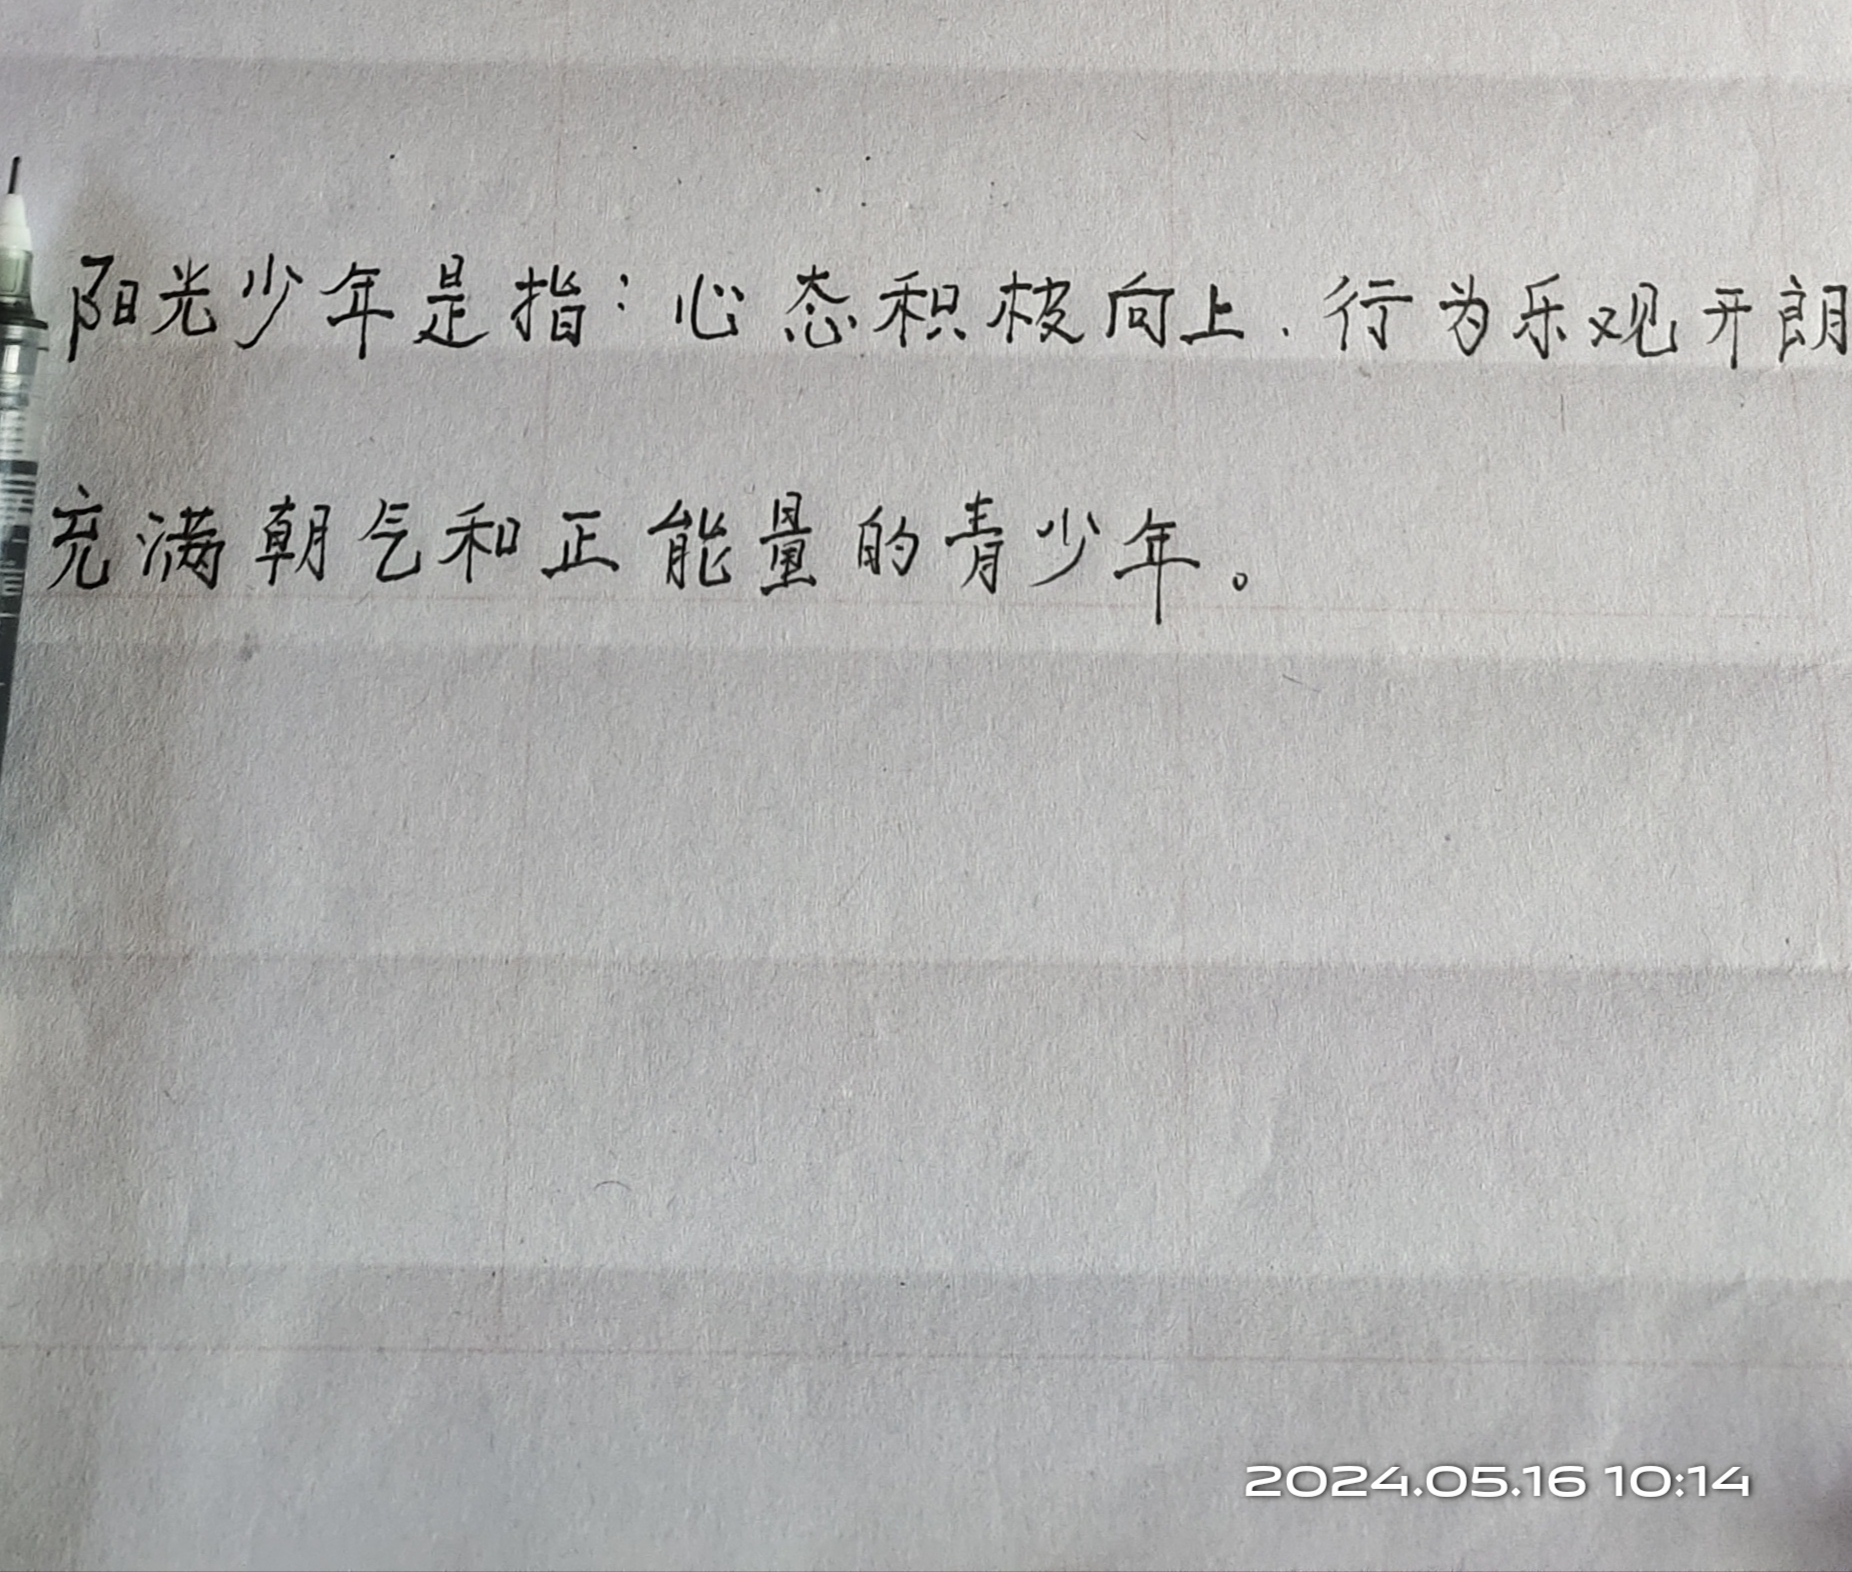 阳光少年是指：心态积极向上.行为乐观开朗
充满朝气和正能量的青少年。
2024.05.16 10:14